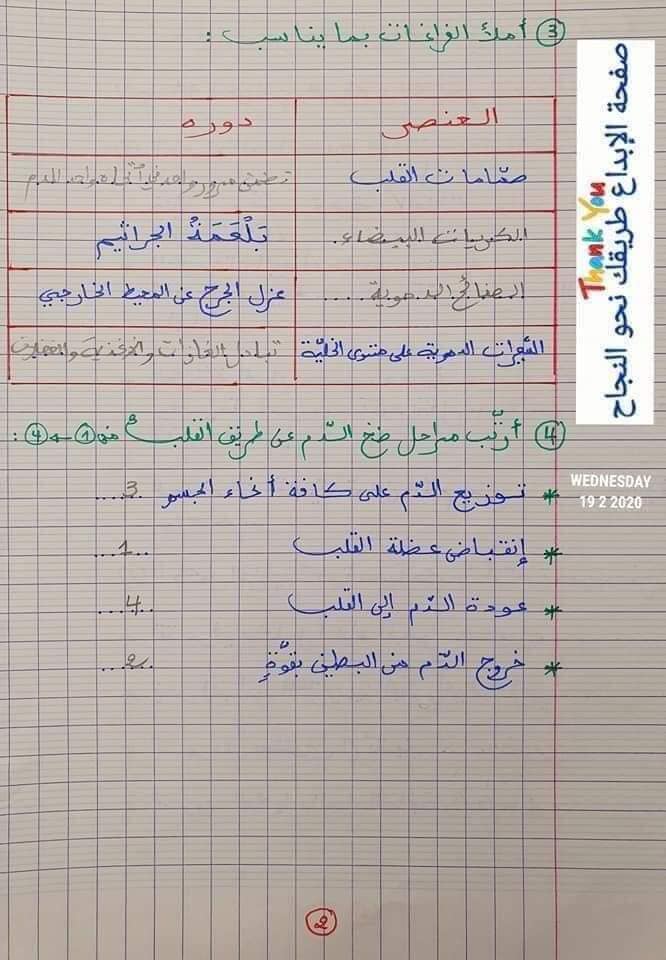 ③ أملأ الفراغات بما يناسب :
العنصر دوره
صمّامات القلب تضمن مرور واحد في اتجاه واحد للدم
الكويات البيضاء. بَلْعَمَةُ الجراثيم
الصفائح الدموية.... عزل الجرح عن المحيط الخارجي
الشّعيرات الدموية على مستوى الخليّة تبادل الغازات والأغذية والفضلات
④ أرتّب مراحل ضخ الدّم عن طريق القلب من ① ← ④ :
* توزيع الدّم على كافة أنحاء الجسم ..3....
* إنقباض عضلة القلب ..1...
* عودة الدّم إلى القلب ..4....
* خروج الدّم من البطين بقوّةٍ ..2....
2
صفحة الإبداع طريقك نحو النجاح
Thank You
WEDNESDAY
19 2 2020